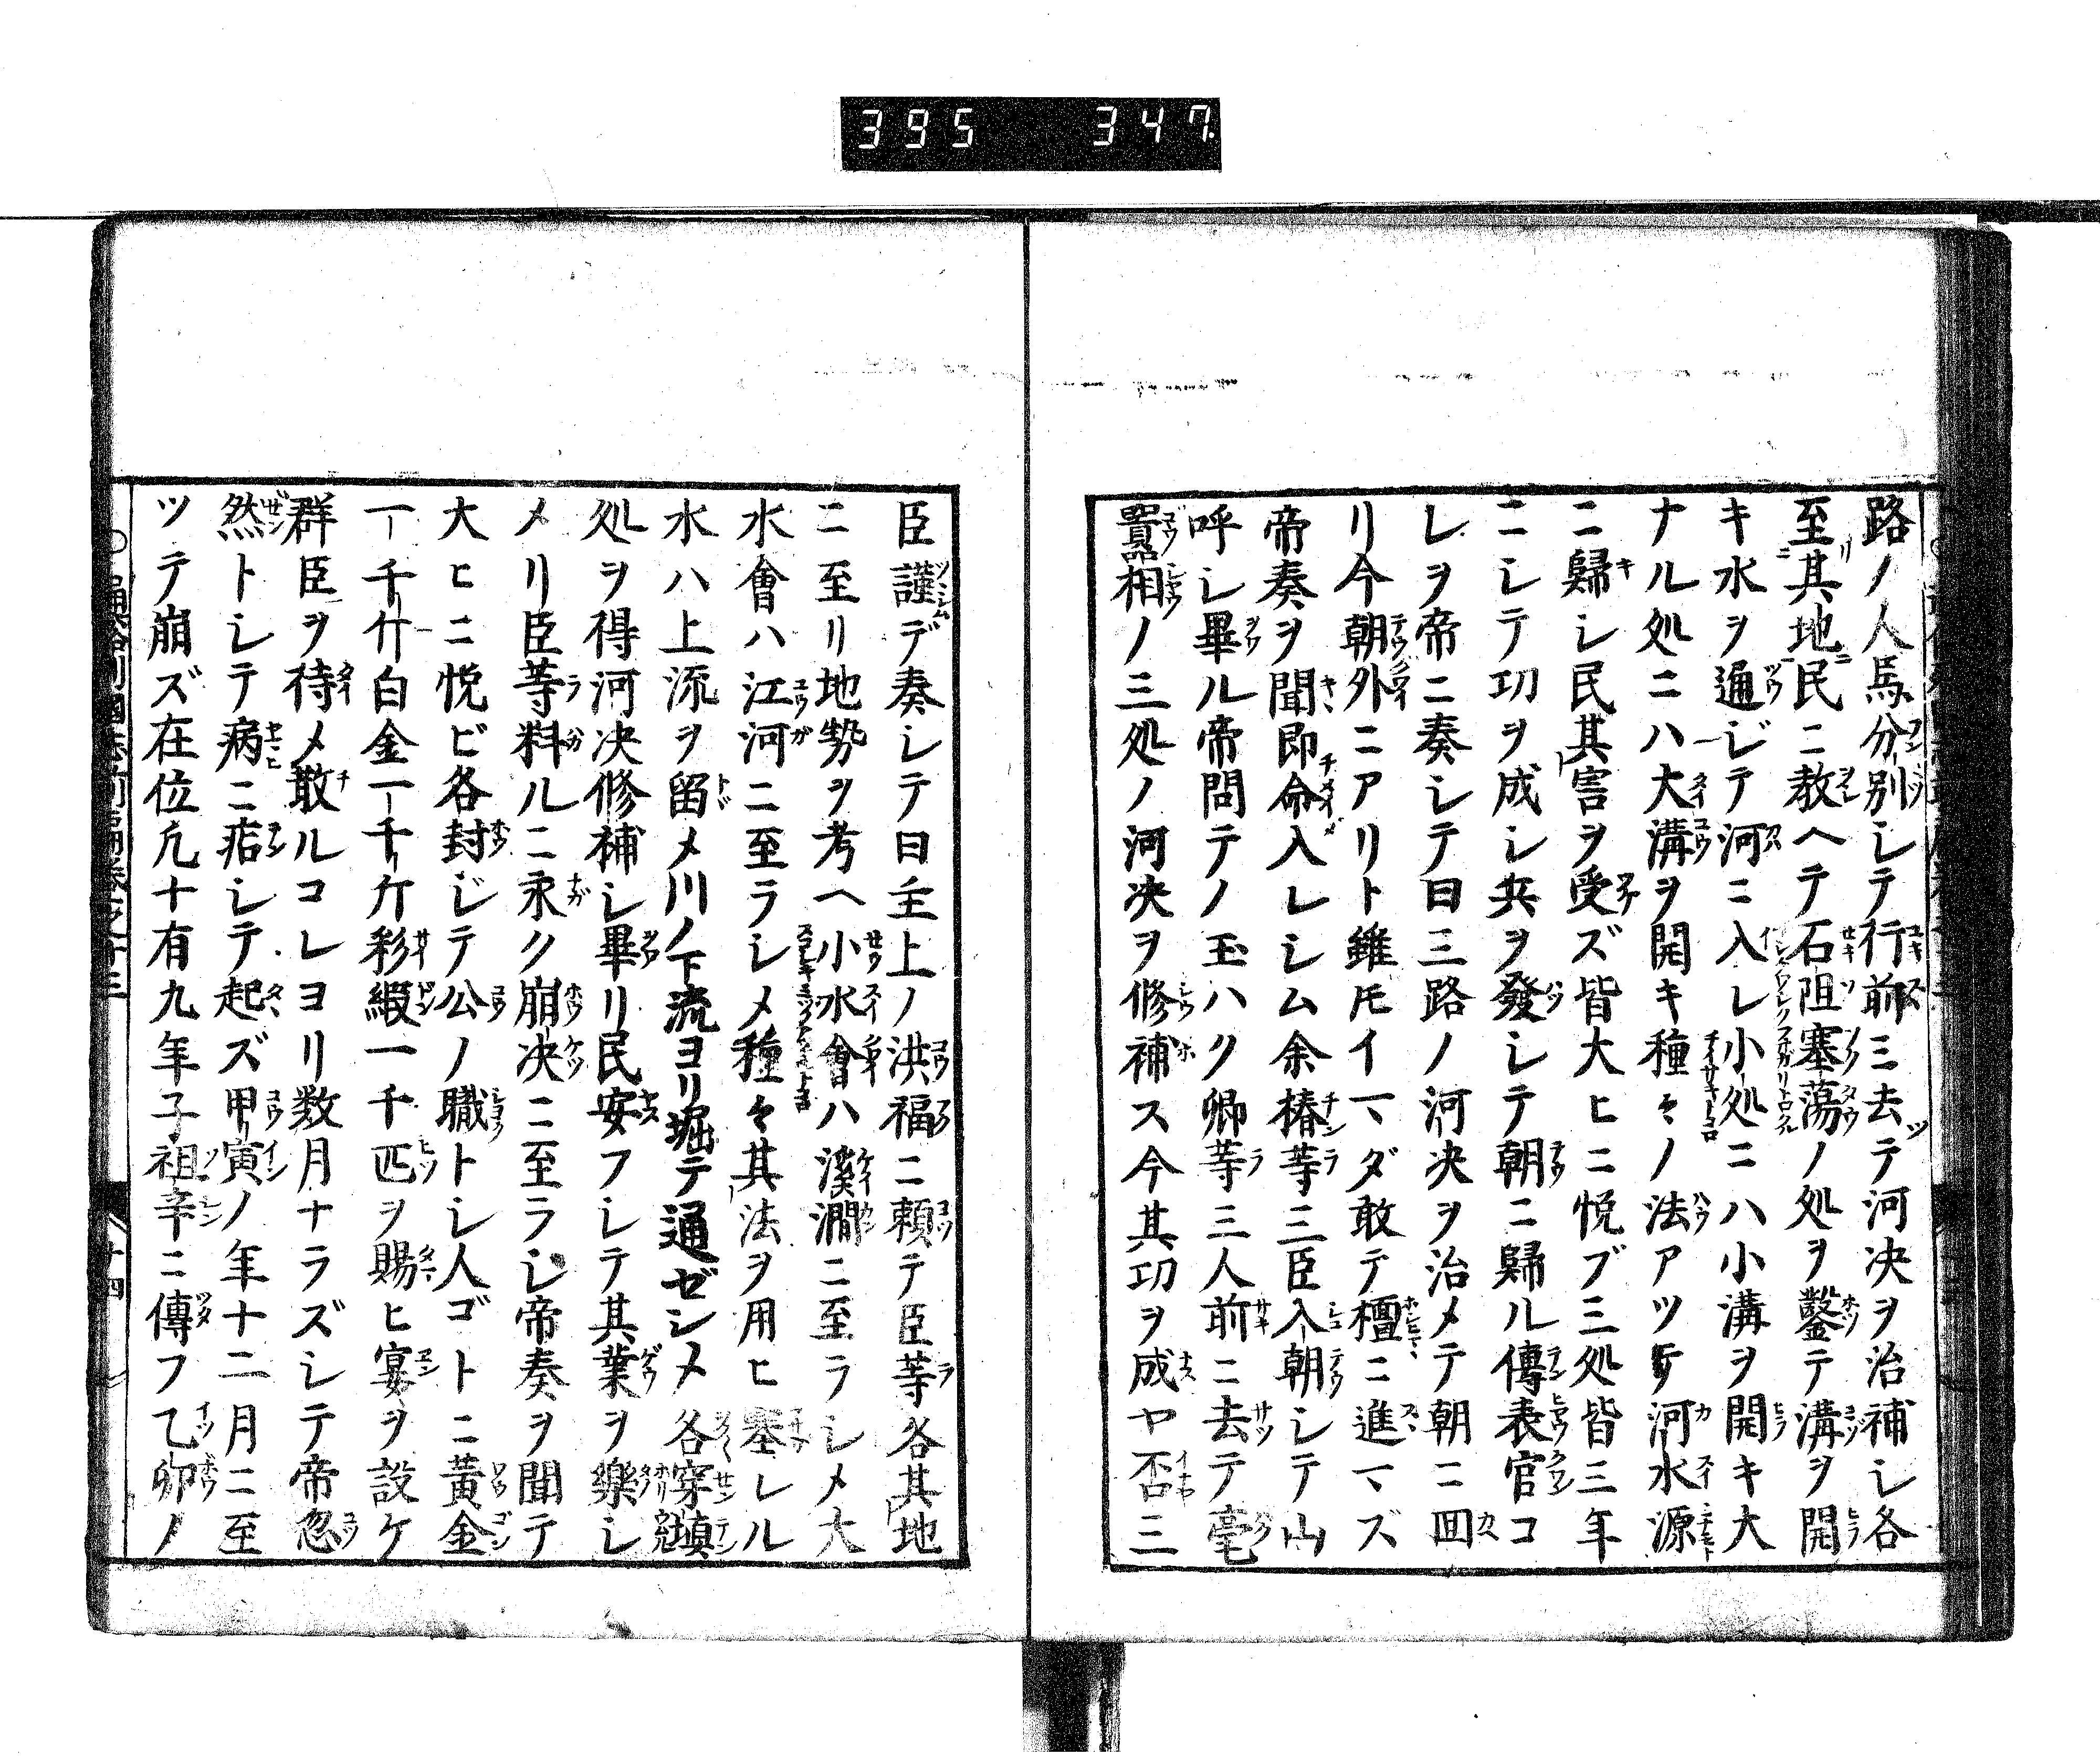 395 347
路ノ人馬分別シテ行前ミ去テ河决ヲ治補シ各
至其地民ニ教ヘテ石阻塞蕩ノ処ヲ鑿テ溝ヲ開
キ水ヲ通ジテ河ニ入レ小処ニハ小溝ヲ開キ大
ナル処ニハ大溝ヲ開キ種々ノ法アツテ河水源
ニ歸シ民其害ヲ受ズ皆大ヒニ悦ブ三処皆三年
ニシテ功ヲ成シ兵ヲ發シテ朝ニ歸ル傳表官コ
レヲ帝ニ奏シテ曰三路ノ河决ヲ治メテ朝ニ囬
リ今朝外ニアリト雖𪜈イマダ敢テ檀ニ進マズ
帝奏ヲ聞即命入レシム余椿等三臣入朝シテ山
呼シ畢ル帝問テノ玉ハク卿等三人前ニ去テ毫
囂相ノ三処ノ河决ヲ修補ス今其功ヲ成ヤ否三
臣謹デ奏シテ曰主上ノ洪福ニ頼テ臣等各其地
ニ至リ地勢ヲ考ヘ小水會ハ溪澗ニ至ラシメ大
水會ハ江河ニ至ラシメ種々其法ヲ用ヒ塞レル
水ハ上流ヲ留メ川ノ下流ヨリ堀テ通ゼシメ各穿填
処ヲ得河决修補シ畢リ民安フシテ其業ヲ樂シ
メリ臣等料ルニ永ク崩决ニ至ラジ帝奏ヲ聞テ
大ヒニ悦ビ各封ジテ公ノ職トシ人ゴトニ黃金
一千斤白金一千斤彩緞一千匹ヲ賜ヒ宴ヲ設ケ
群臣ヲ待メ散ルコレヨリ数月ナラズシテ帝忽
然トシテ病ニ㾏シテ起ズ甲寅ノ年十二月ニ至
ツテ崩ズ在位凢十有九年子祖辛ニ傳フ乙卯ノ
十四